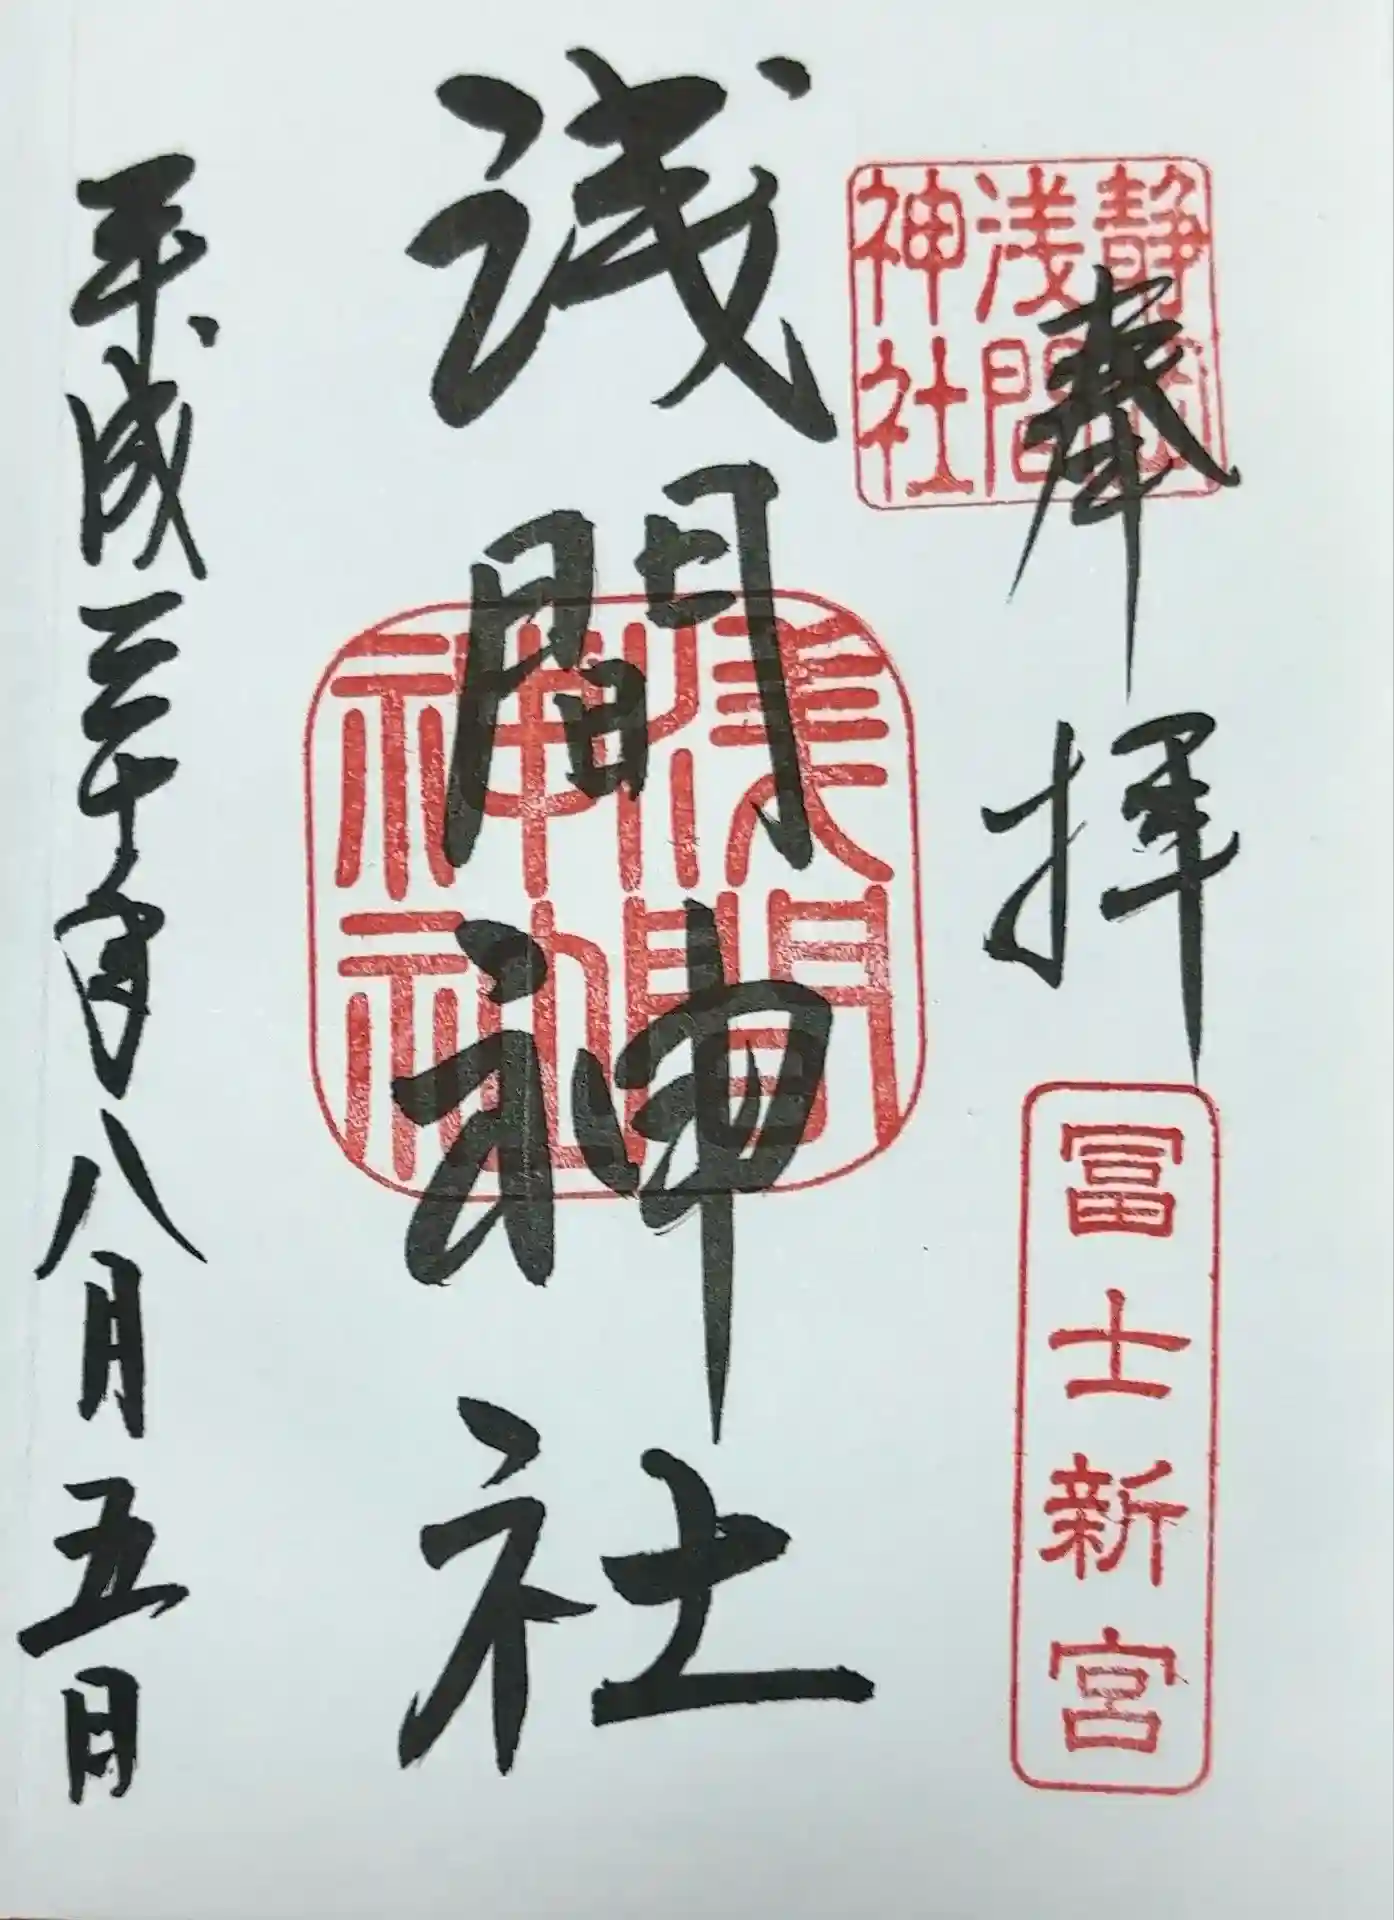 奉拝
静岡
浅間
神社
冨士新宮
浅間神社
浅間
神社
平成三十年八月五日